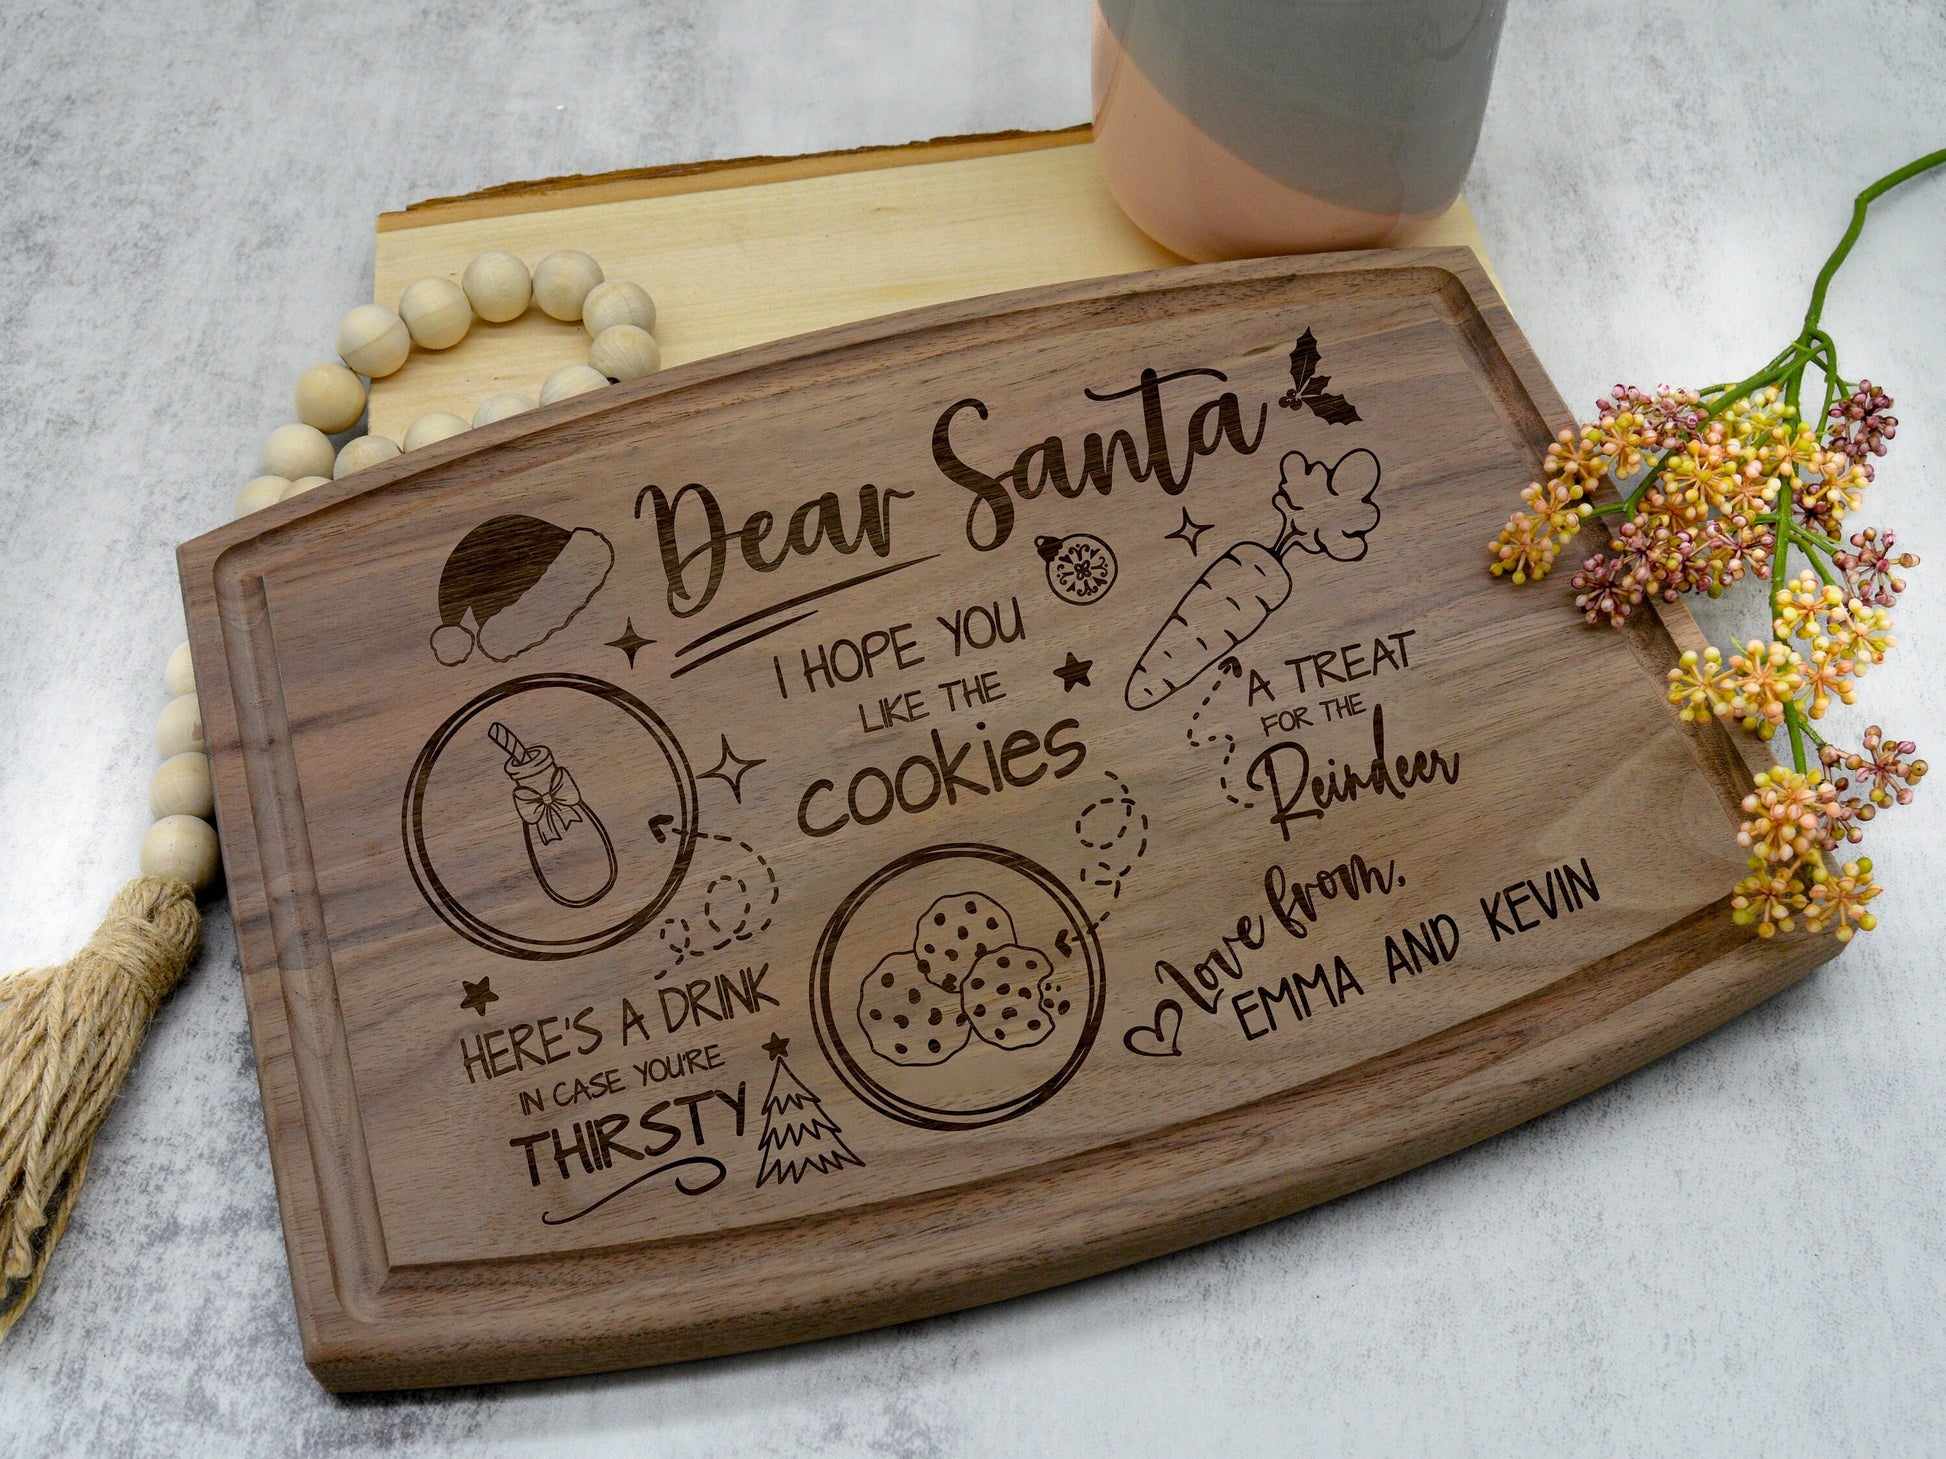 Dear Santa
I HOPE YOU
LIKE THE
cookies
A TREAT
FOR THE
Reindeer
HERE'S A DRINK
IN CASE YOU'RE
THIRSTY
Love from,
EMMA AND KEVIN